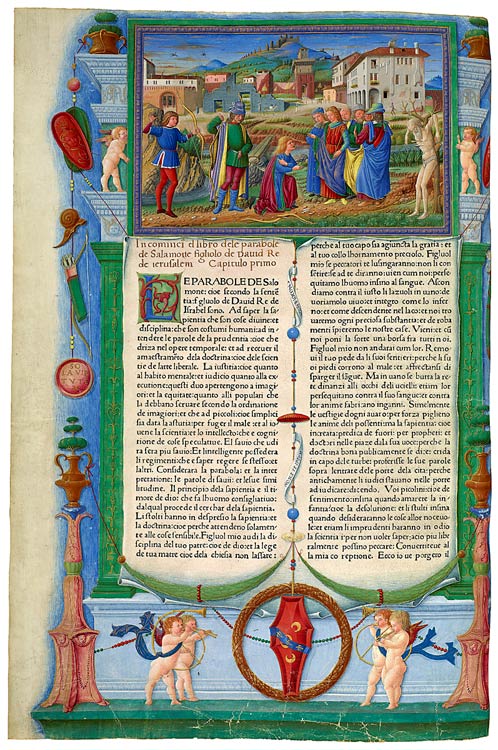 Incominci el libro dele parabole
de Salamone figliolo de Dauid Re
de ierusalem Capitulo primo
LE PARABOLE DE Salo
mone: cioe secondo la sentē
tia figluolo de Dauid Re de
Israhel sono. Ad saper la sa
pientia che son cose diuine: et
disciplina: che son costumi humani: ad in
tendere le parole de la prudentia
driza nel opere temporale: et ad receuer il
amaestramēto dela doctrina: cioe dele scientie
de larte liberale. La iustitia: quanto al
habito mentale: et iudicio quanto alla exe
cutione:
ori: et la equitate: quanto alli populari che
la debbano seruare secondo la ordinatione
de imagiori: et che ad piccoli: cioe simplici
sia data la astutia: per fugere el male: et al io
uene la scientia: et lo intellecto: che e cognitio
ne de cose speculatiue. El sauio che udi
ra sera piu sauio: Et lo intelligente possedera
li regimenti: che e saper regere se stesso: et
laltri. Considerara la parabola: et la inter
pretatione: le parole di sauii: et le sue simi
litudine. Il principio dela sapientia e il ti
more de dio: che fa lhuomo consigliatiuo:
dal qual procede el cerchar dela sapientia.
Li stolti hanno in despresio la sapientia: et
la doctrina: cioe perche attendeno solamēte
alle cose sensibile. Figluol mio audi la di
sciplina del tuo patre: cioe de dio: et la lege
de tua matre cioe dela chiesia non lassare:
perche al tuo capo sia agiuncta la gratia: et
al tuo collo lhornamento precioso. Figluol
mio se peccatori te lusingaranno: non li con
setire: se ad te diranno: uien cum noi: per se
quitamo lhuomo insino al sangue. Ascon
diamo contra il iusto li lazuoli in uano: de
uoriamolo uiuo: et integro come lo infer
no: et come descendente nel laco: et noi tro
uaremo ogni preciosa substantia: et de roba
menti spiremo le nostre case. Vieni: et cū
noi poni la sorte una borsa fra tutti noi.
Figluol mio non andarai cum lor. Remo
ui il tuo pede da li suoi sentieri: perche li su
oi piedi corrono al male: et affrectansi de
spargere il sāgue. Ma in uano se butta la re
te dinanzi alli ochi deli ucielli:
persequitano contra il suo sangue: et contra
lor anime fabricano inganni. Similemente

le anime deli possessori: ma la sapientia: cioe
increata: predica de fuori: per propheti: et
doctori: nelle piaze dala sua uoce: perche la
doctrina bona publicamente se dice:
in capo dele turbe: proferisse le sue parole
sopra lentrate dele porte dela cita: perche
antichamente li iudici stauano nelle porte
ad iudicare: dicendo. Voi piccolini: cioe de
sentimento: insino quando amarete la in
fantia: cioe la desolutione: et li stulti insina
quando desideraranno le cose allor noceuo
le: et eram li imprudenti haranno in odio
la scientia: per non uoler saper: acio piu libe
ralmente possino peccare: Conuertitiue al
la mia correptione. Ecco io ue porgero il